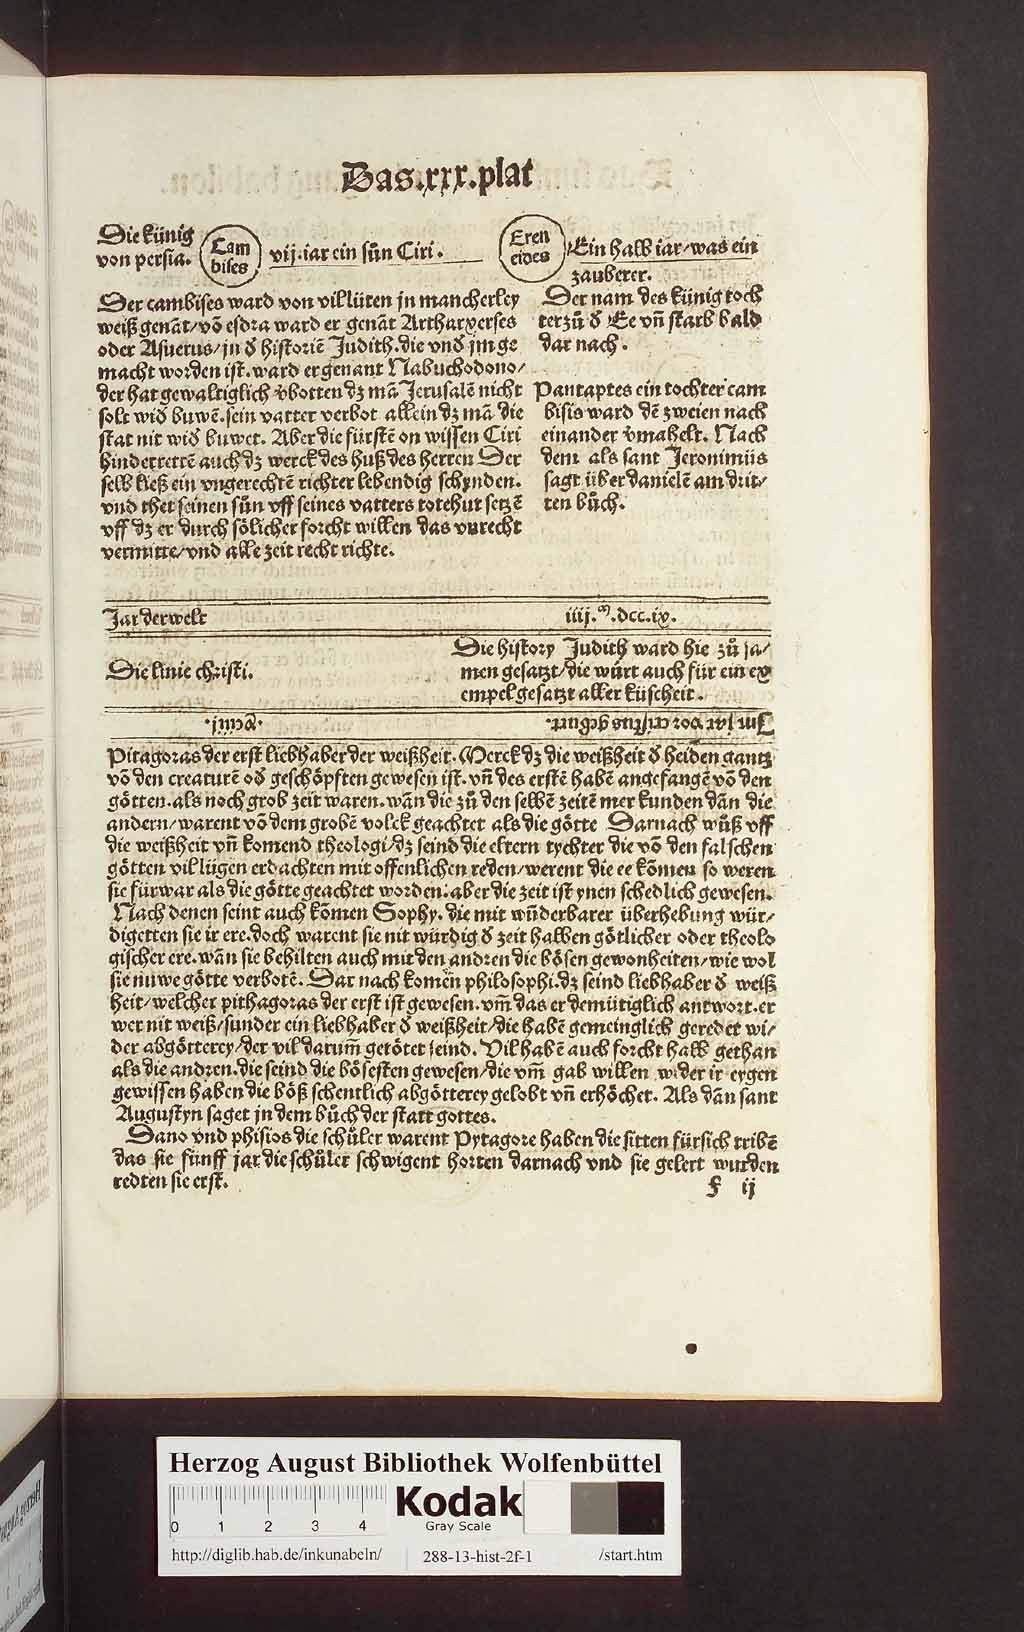 Das.xxx.plat
Die künig
von persia.
Cam
bises
vij.iar ein sůn Ciri.
Eren
eides
Ein halb iar/was ein
zauberer.
Der cambises ward von vil lüten jn mancherley
weiß genāt/vō esdra ward er genāt Artharxerses
oder Asuerus/jn d̕ historiē Judith.die vnd̕ jm ge
macht worden ist.ward er genant Nabuchodono/
der hat gewaltiglich v̕botten dz mā Jerusalē nicht
solt wid̕ buwē.sein vatter verbot allein dz mā die
stat nit wid̕ buwet. Aber die fürstē on wissen Ciri
hinderrettē auch dz werck des huß des herren Der
selb ließ ein vngerechtē richter lebendig schynden.
vnd thet seinen sůn vff seines vatters totehut setzē
vff dz er durch sölicher forcht willen das vnrecht
vermitte/vnd alle zeit recht richte.
Der nam des künig toch
terzů d̕ Ee vn̄ starb bald
dar nach.
Pantaptes ein tochter cam
bisis ward dē zweien nach
einander v̕mahelt. Nach
dem als sant Jeronimüs
sagt über danielē am drit/
ten bůch.
Jar der welt
iiij.M.dcc.ix.
Die linie christi.
Die history Judith ward hie zů ja/
men gesatzt/die würt auch für ein ex
empel gesatzt aller küscheit.
Im jar vor cristus geburt.
Pitagoras der erst liebhaber der weißheit. Merck dz die weißheit d̕ heiden gantz
vō den creaturē od̕ geschöpften gewesen ist. vn̄ des erstē habē angefangē vō den
götten.als noch grob zeit waren.wān die zů den selbē zeitē mer kunden dān die
andern/warent vō dem grobē volck geachtet als die götte Darnach wůß vff
die weißheit vn̄ komend theologi/dz seind die eltern tychter die vō den falschen
götten vil lügen erdachten mit offenlichen reden/werent die ee kōmen so weren
sie fürwar als die götte geachtet worden:aber die zeit ist ynen schedlich gewesen.
Nach denen seint auch kōmen Sophy. die mit wūderbarer überhebung wür/
digetten sie ir ere.doch warent sie nit würdig d̕ zeit halben götlicher oder theolo
gischer ere.wān sie behilten auch mit den andren die bösen gewonheiten/wie wol
sie nuwe götte verbotē. Dar nach komen philosophi.dz seind liebhaber d̕ weiß
heit/welcher pithagoras der erst ist gewesen. vm̄ das er demütiglich antwort.er
wer nit weiß/sunder ein liebhaber d̕ weißheit/die habē gemeinglich geredet wi/
der abgötterey/der vil darum̄ getötet seind. Vil habē auch forcht halb gethan
als die andren.die seind die bösesten gewesen/die vm̄ gab willen wider ir eygen
gewissen haben die böß schentlich abgötterey gelobt vn̄ erhöchet. Als dān sant
Augustyn saget jn dem bůch der statt gottes.
Dano vnd phisios die schůler warent Pytagore haben die sitten fürsich tribē
das sie fünff jar die schůler schwigent horten darnach vnd sie gelert wurden
redten sie erst.
f ij
Herzog August Bibliothek Wolfenbüttel
0 1 2 3 4
Kodak
Gray Scale
http://diglib.hab.de/inkunabeln/
288-13-hist-2f-1
/start.htm